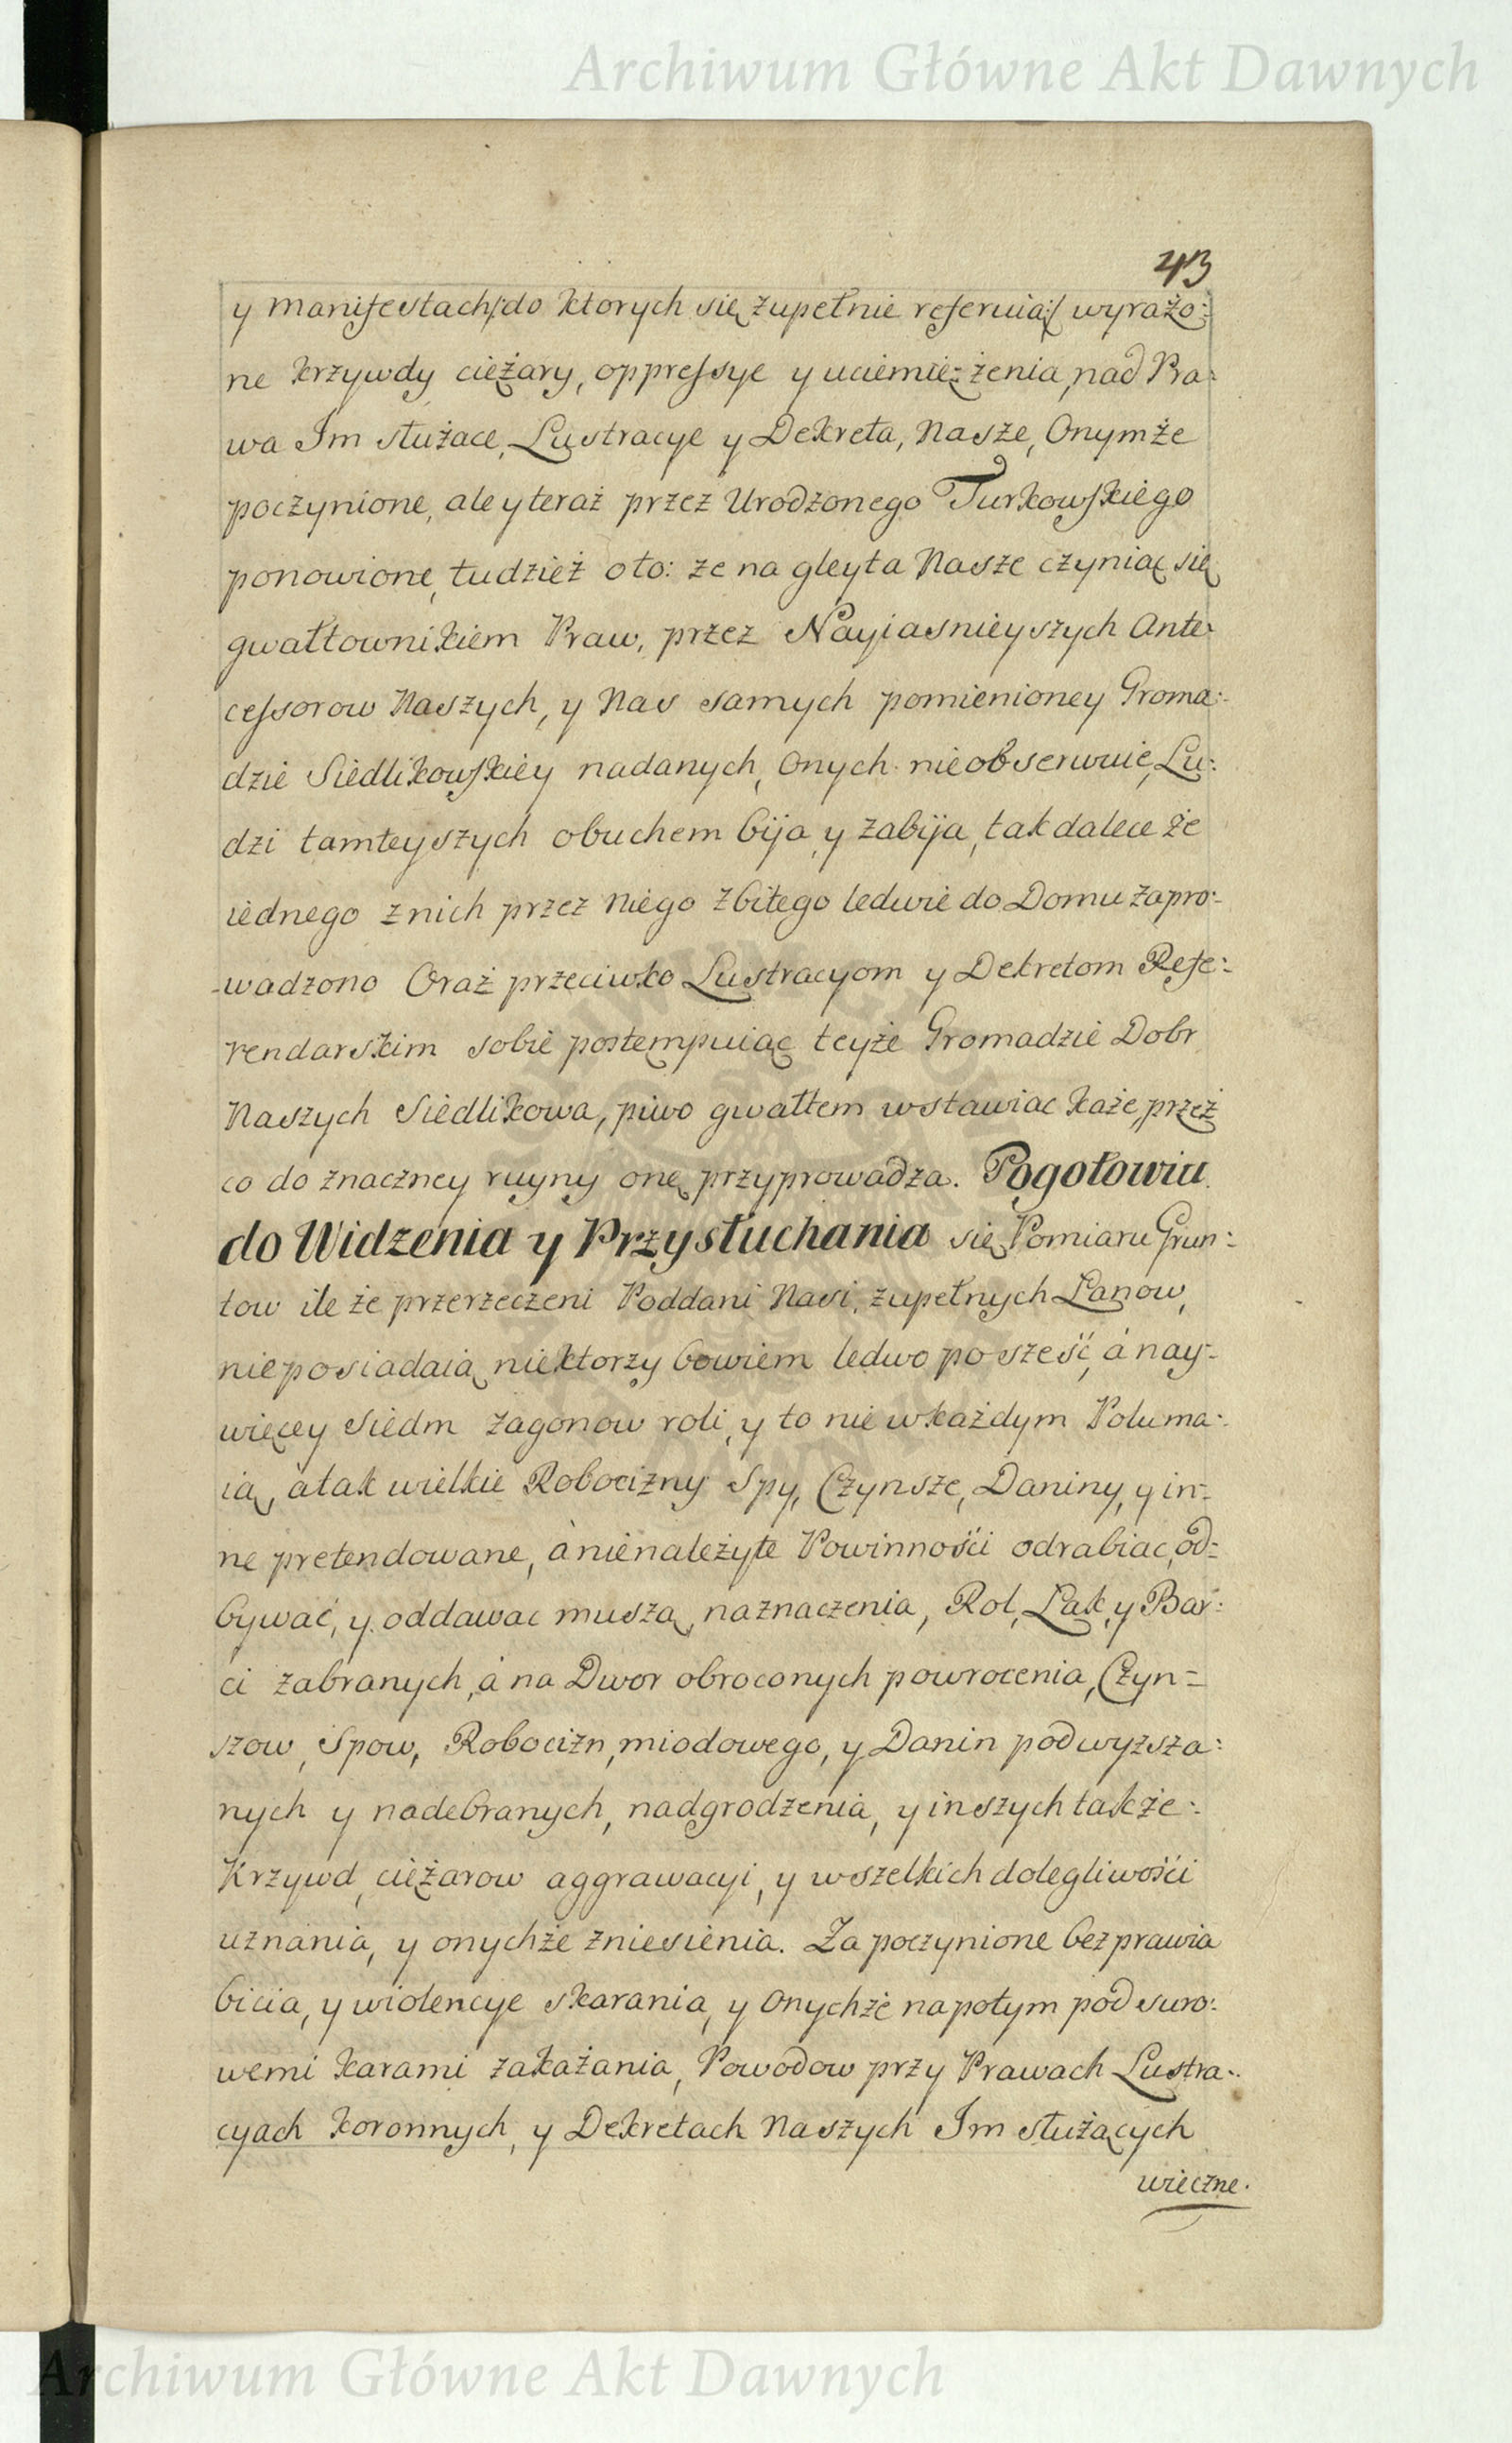 Archiwum Główne Akt Dawnych
43
y manifestach/:do ktorych się zupełnie referuią:/ wyrażo:
ne krzywdy ciężary, oppressye y uciemię:żenia, nad Pra:
wa Im służace, Lustracye y Dekreta, Nasze, Onymże
poczynione, ale y teraz przez Urodzonego Turkowskiego
ponowione, tudzież oto: że na gleyta Nasze czyniąc się
gwałtownikiem Praw, przez Nayiasnieyszych Ante:
cessorow Naszych, y Nas samych pomienioney Groma:
dzie Siedlikowskiey nadanych, Onych nieobserwuie, Lu:
dzi tamteyszych obuchem bija, y zabija, tak dalece że
iednego z nich przez niego zbitego ledwie do Domu zapro:
-wadzono Oraz przeciwko Lustracyom y Dekretom Refe:
rendarskim sobie postempuiąc teyże Gromadzie Dobr
Naszych Siedlikowa, piwo gwałtem wstawiac każe, przez
co do znaczney ruyny onę przyprowadza. Pogotowiu
do Widzenia y Przysłuchania się Pomiaru Grun:
tow ile że przerzeczeni Poddani Nasi, zupełnych Łanow,
nieposiadaią, niektorzy bowiem ledwo po sześć, á nay:
więcey siedm zagonow roli, y to nie wkażdym Polu ma:
ią, atak wielkie Robocizny Spy, Czynsze, Daniny, y in:
ne pretendowane, á nienależyte Powinności odrabiac, od:
bywać, y oddawac muszą, naznaczenia, Rol, Łąk, y Bar:
ci zabranych, á na Dwor obroconych powrocenia, Czyn=
szow, Spow, Robocizn, miodowego, y Danin podwyzsza:
nych y nadebranych, nadgrodzenia, y inszych także:
Krzywd, ciężarow aggrawacyi, y wszelkich dolegliwości
uznania, y onychże zniesienia. Za poczynione bezprawia
bicia, y wiolencye skarania, y Onychże napotym pod suro:
wemi karami zakażania, Powodow przy Prawach Lustra:
cyach koronnych, y Dekretach Naszych Im służących
wieczne.
Archiwum Główne Akt Dawnych